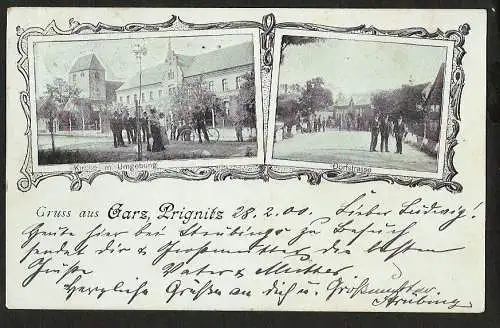 Kirche m. Umgebung
Dorfstrasse
Gruss aus Garz, Prignitz 28.2.00. Lieber Ludwig!
Heute hier bei Strübings zu Besuch
sendet dir & Großmutter die besten
Grüße Vater & Mutter.
Herzliche Grüße an dich u. Großmutter.
Strübing